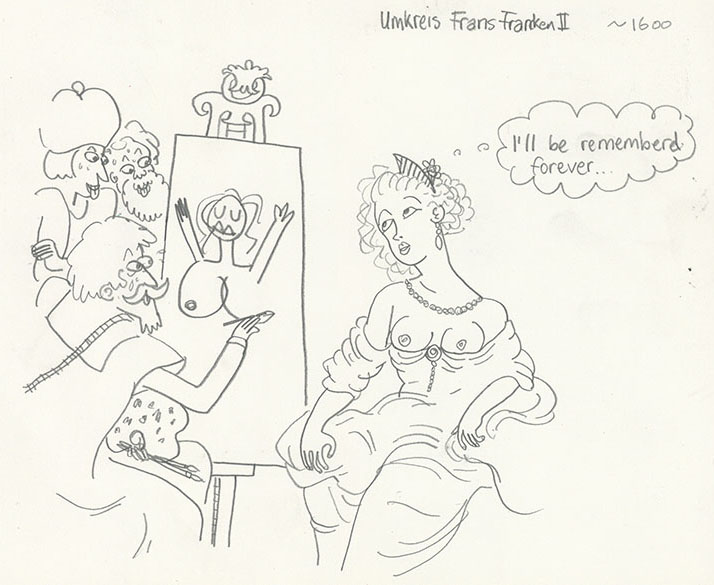 Umkreis Frans Franken II ~1600
I'll be rememberd
forever...